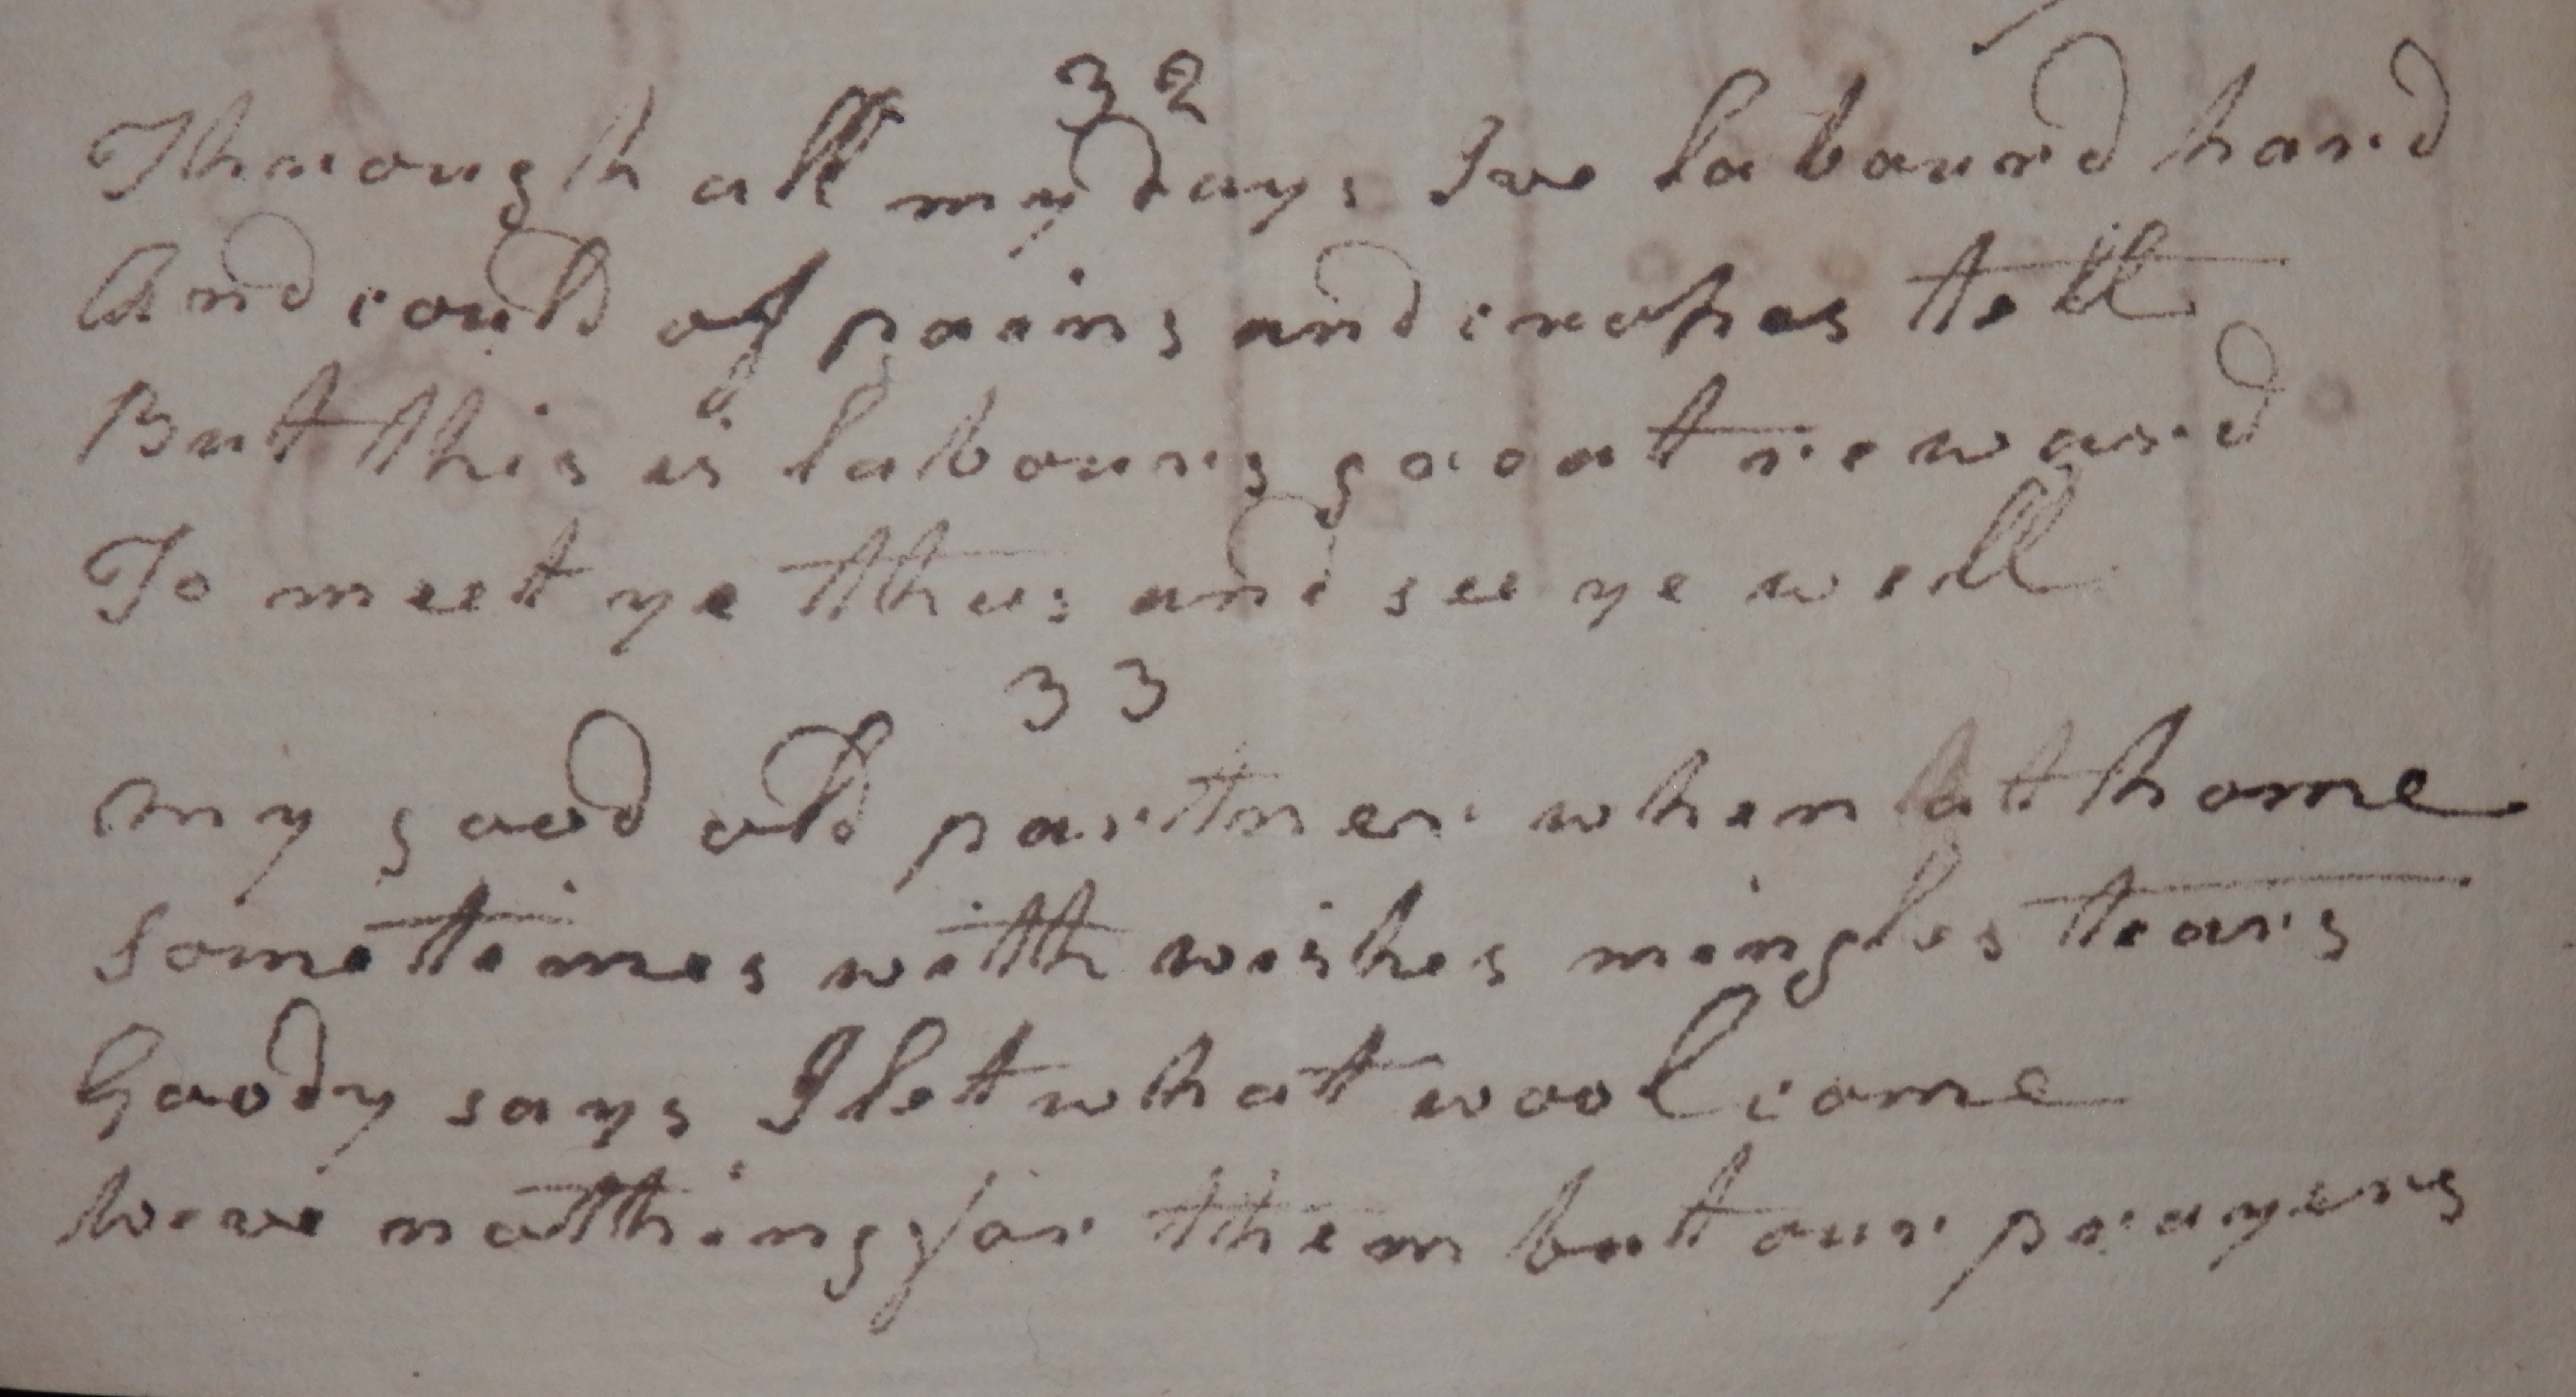 32
Through all my days Ive labourd hard
And could of pains and crosses tell
But this is labours great reward
To meet ye thus and see ye well
33
My good old partner when at home
Sometimes with wishes mingles tears
Goody says I let what wool come
Weve nothing for them but our prayers